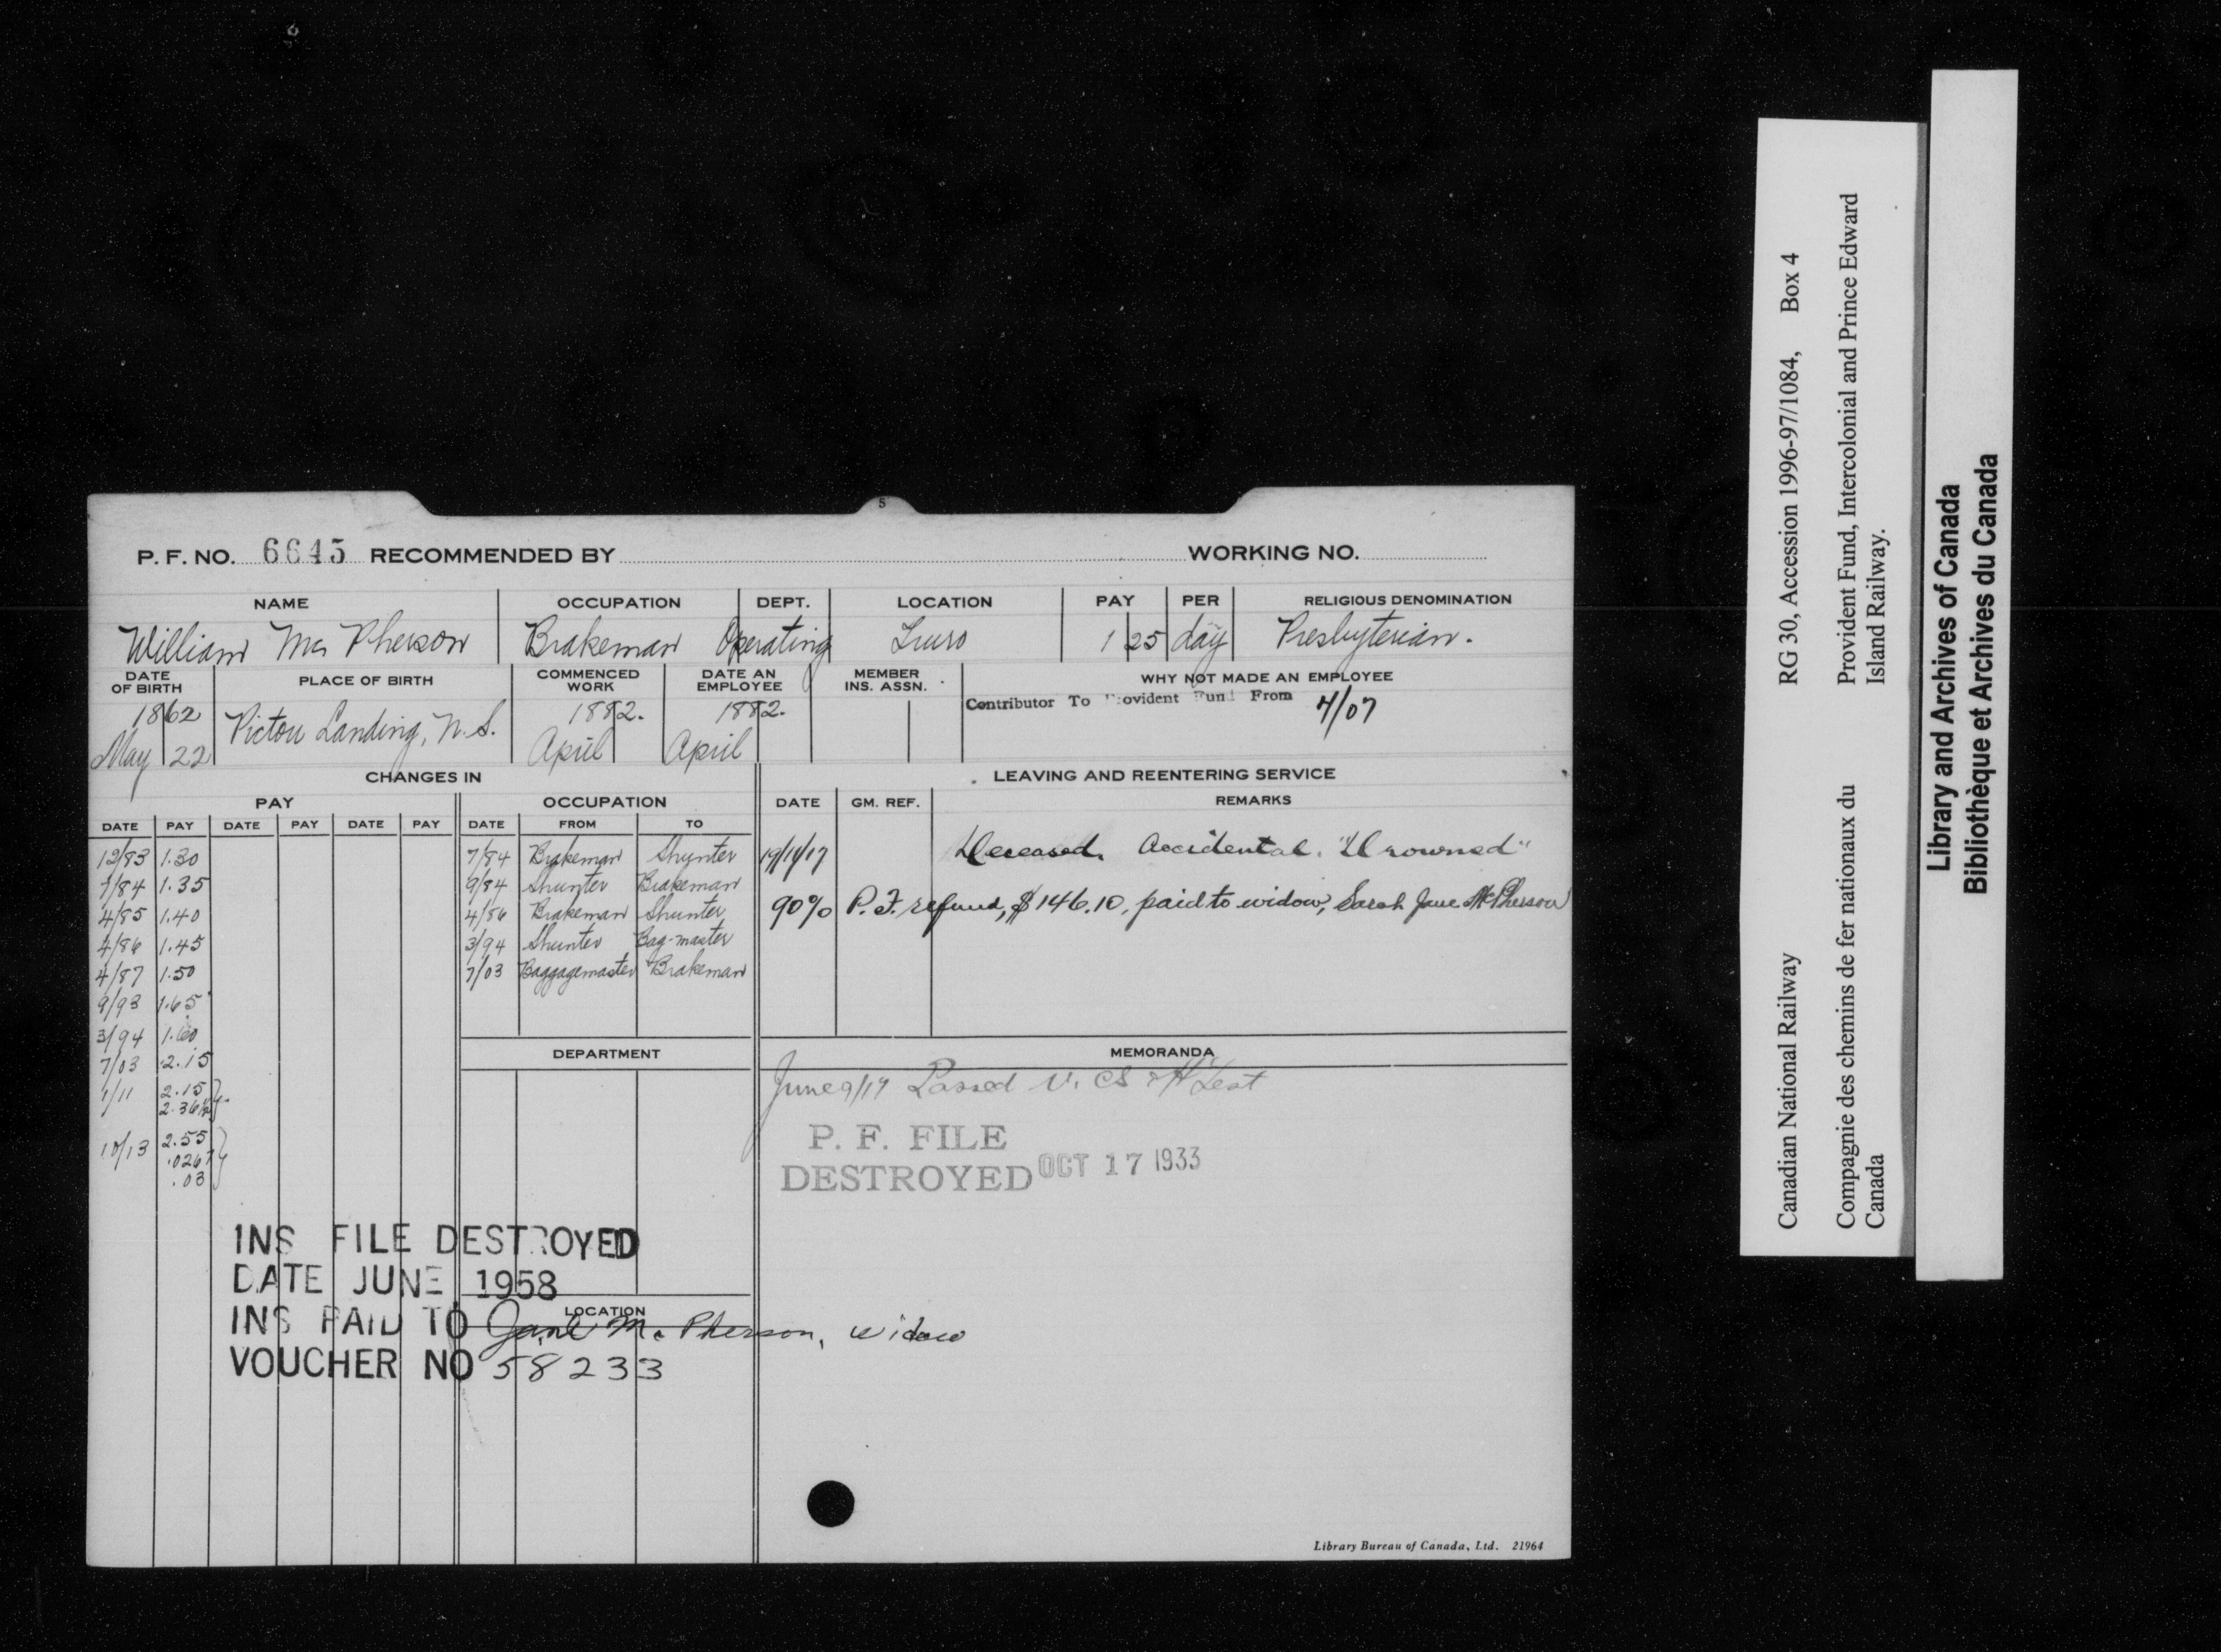 5
P. F. NO. 6645 RECOMMENDED BY WORKING NO.
NAME OCCUPATION DEPT. LOCATION PAY PER RELIGIOUS DENOMINATION
William McPherson Brakeman Operating Truro 1 25 day Presbyterian.
DATE OF BIRTH PLACE OF BIRTH COMMENCED WORK DATE AN EMPLOYEE MEMBER INS. ASSN. WHY NOT MADE AN EMPLOYEE
Contributor To Provident Fund From 4/07
1862 Pictou Landing, N.S. 1882. 1882.
May 22 April April
CHANGES IN LEAVING AND REENTERING SERVICE
PAY OCCUPATION DATE GM. REF. REMARKS
DATE PAY DATE PAY DATE PAY DATE FROM TO
12/83 1.30 7/84 Brakeman Shunter 19/11/17 Deceased. Accidental. "Drowned"
7/84 1.35 9/84 Shunter Brakeman
4/85 1.40 4/86 Brakeman Shunter 90% P.F. refund, $146.10, paid to widow, Sarah Jane McPherson
4/86 1.45 3/94 Shunter Bag-master
4/87 1.50 7/03 Baggagemaster Brakeman
9/93 1.65
3/94 1.60
7/03 2.15
DEPARTMENT MEMORANDA
1/11 2.15
2.36½
June 9/17 Passed V. CS & H Test
10/13 2.55
.0267
.03
P. F. FILE
DESTROYED OCT 17 1933
INS FILE DESTROYED
DATE JUNE 1958
LOCATION
INS PAID TO Jane McPherson, widow
VOUCHER NO 58233
Library Bureau of Canada, Ltd. 21964
RG 30, Accession 1996-97/1084, Box 4
Canadian National Railway
Provident Fund, Intercolonial and Prince Edward
Island Railway.
Compagnie des chemins de fer nationaux du
Canada
Library and Archives of Canada
Bibliothèque et Archives du Canada